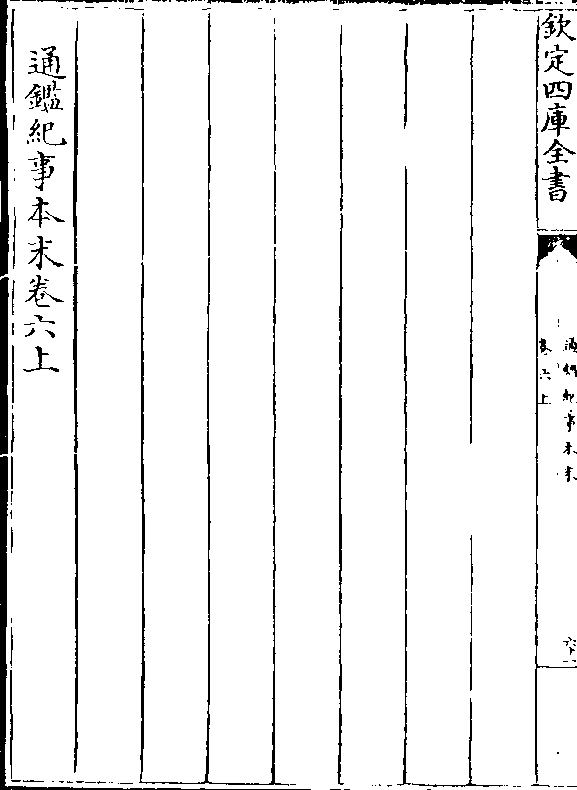 欽定四庫全書
通鑑紀事本末
卷六上
通鑑紀事本末卷六上